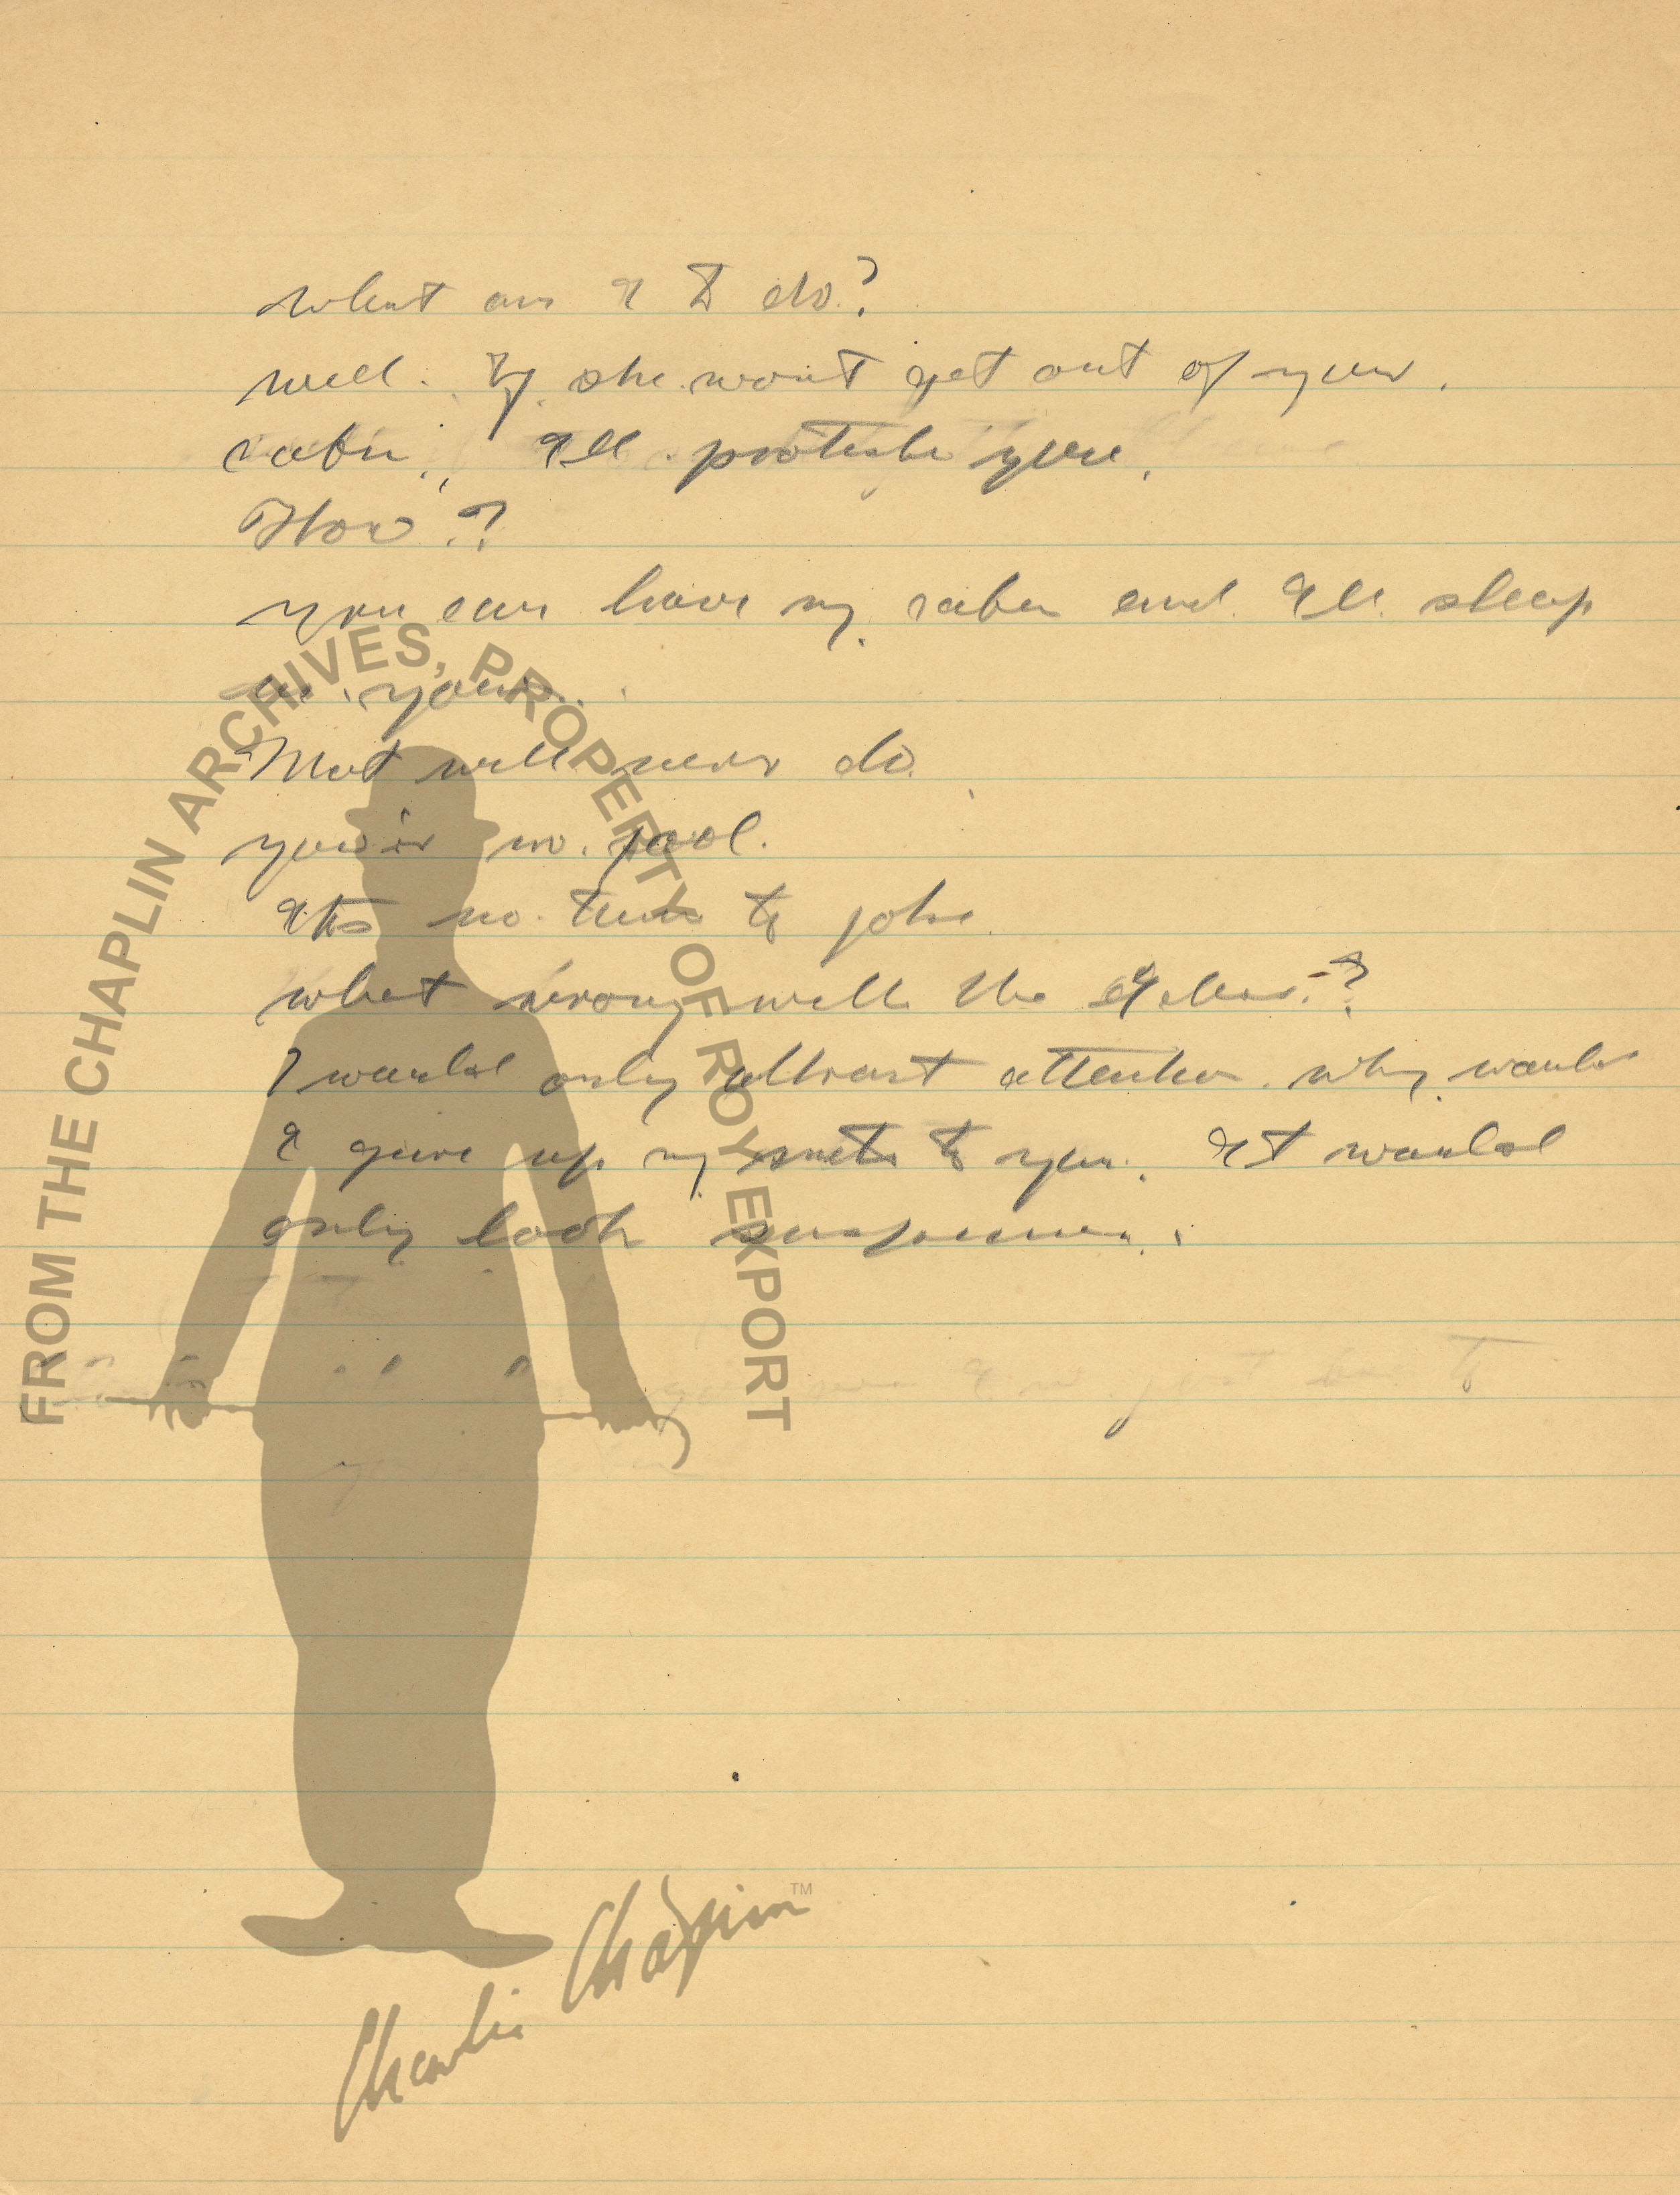 what am I to do?
well. If she wont get out of your.
cabin, I'll protect you.
How?
you can have my cabin and I'll sleep
in yours.
That will never do.
your'e no fool.
Its no time to joke.
what wrong with the idea?
I would only attract attention. why would
I give up my suite to you. It would
only look suspicious.
FROM THE CHAPLIN ARCHIVES, PROPERTY OF ROY EXPORT
Charlie Chaplin™